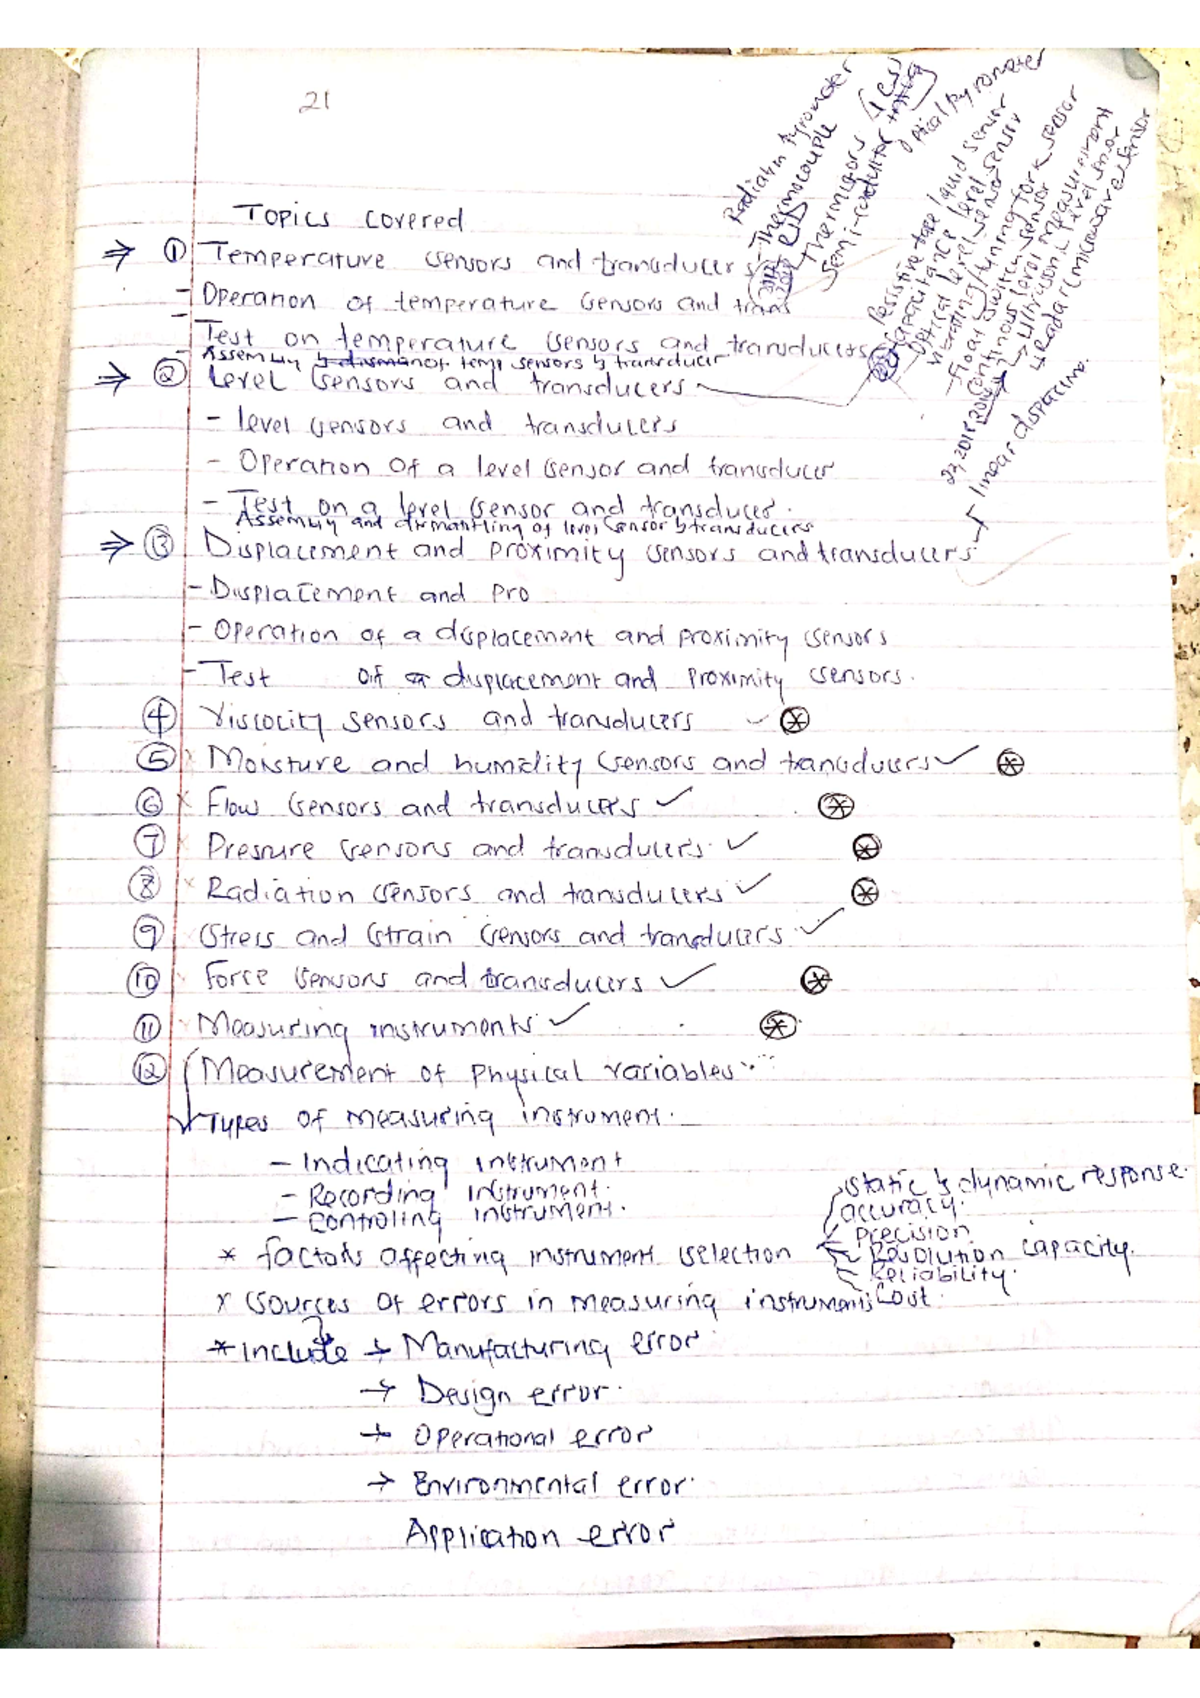 21
Topics covered
⇒ ① Temperature sensors and transducers
- Operation of temperature sensors and trans
- Test on temperature sensors and transducers
- Assembly & disman of temp sensors & transducer
⇒ ② Level sensors and transducers
- level sensors and transducers
- Operation of a level sensor and transducer
- Test on a level sensor and transducer.
Assembly and dismantling of level sensor & transducers
⇒ ③ Displacement and proximity sensors and transducers
- Displacement and pro
- Operation of a displacement and proximity sensors
- Test of a displacement and proximity sensors.
④ Viscocity sensors and transducers ✓
⑤ Moisture and humidity sensors and transducers ✓
⑥ Flow sensors and transducers ✓
⑦ Pressure sensors and transducers ✓
⑧ Radiation sensors and transducers ✓
⑨ Stress and strain sensors and transducers ✓
⑩ Force sensors and transducers ✓
⑪ Measuring instruments ✓
⑫ Measurement of physical variables
Types of measuring instrument.
- Indicating instrument
- Recording instrument.
- Controling instrument.
* factors affecting instrument selection
static & dynamic response.
accuracy.
precision
Resolution capacity.
Reliability.
Cost.
x Sources of errors in measuring instruments
* include → Manufacturing error
→ Design error.
→ Operational error
→ Environmental error.
Application error
Radiation Pyrometer
Thermocouple
RTD
Thermistors
Semi-conductor
Optical Pyrometer
Resistive tape liquid sensor
Capacitance level sensor
Optical level sensor
vibrating/tunning fork sensor
- Float switch sensor
Continous level measurement
→ Ultrasonic level sensor
→ Radar (microwave sensor
linear displacmo.